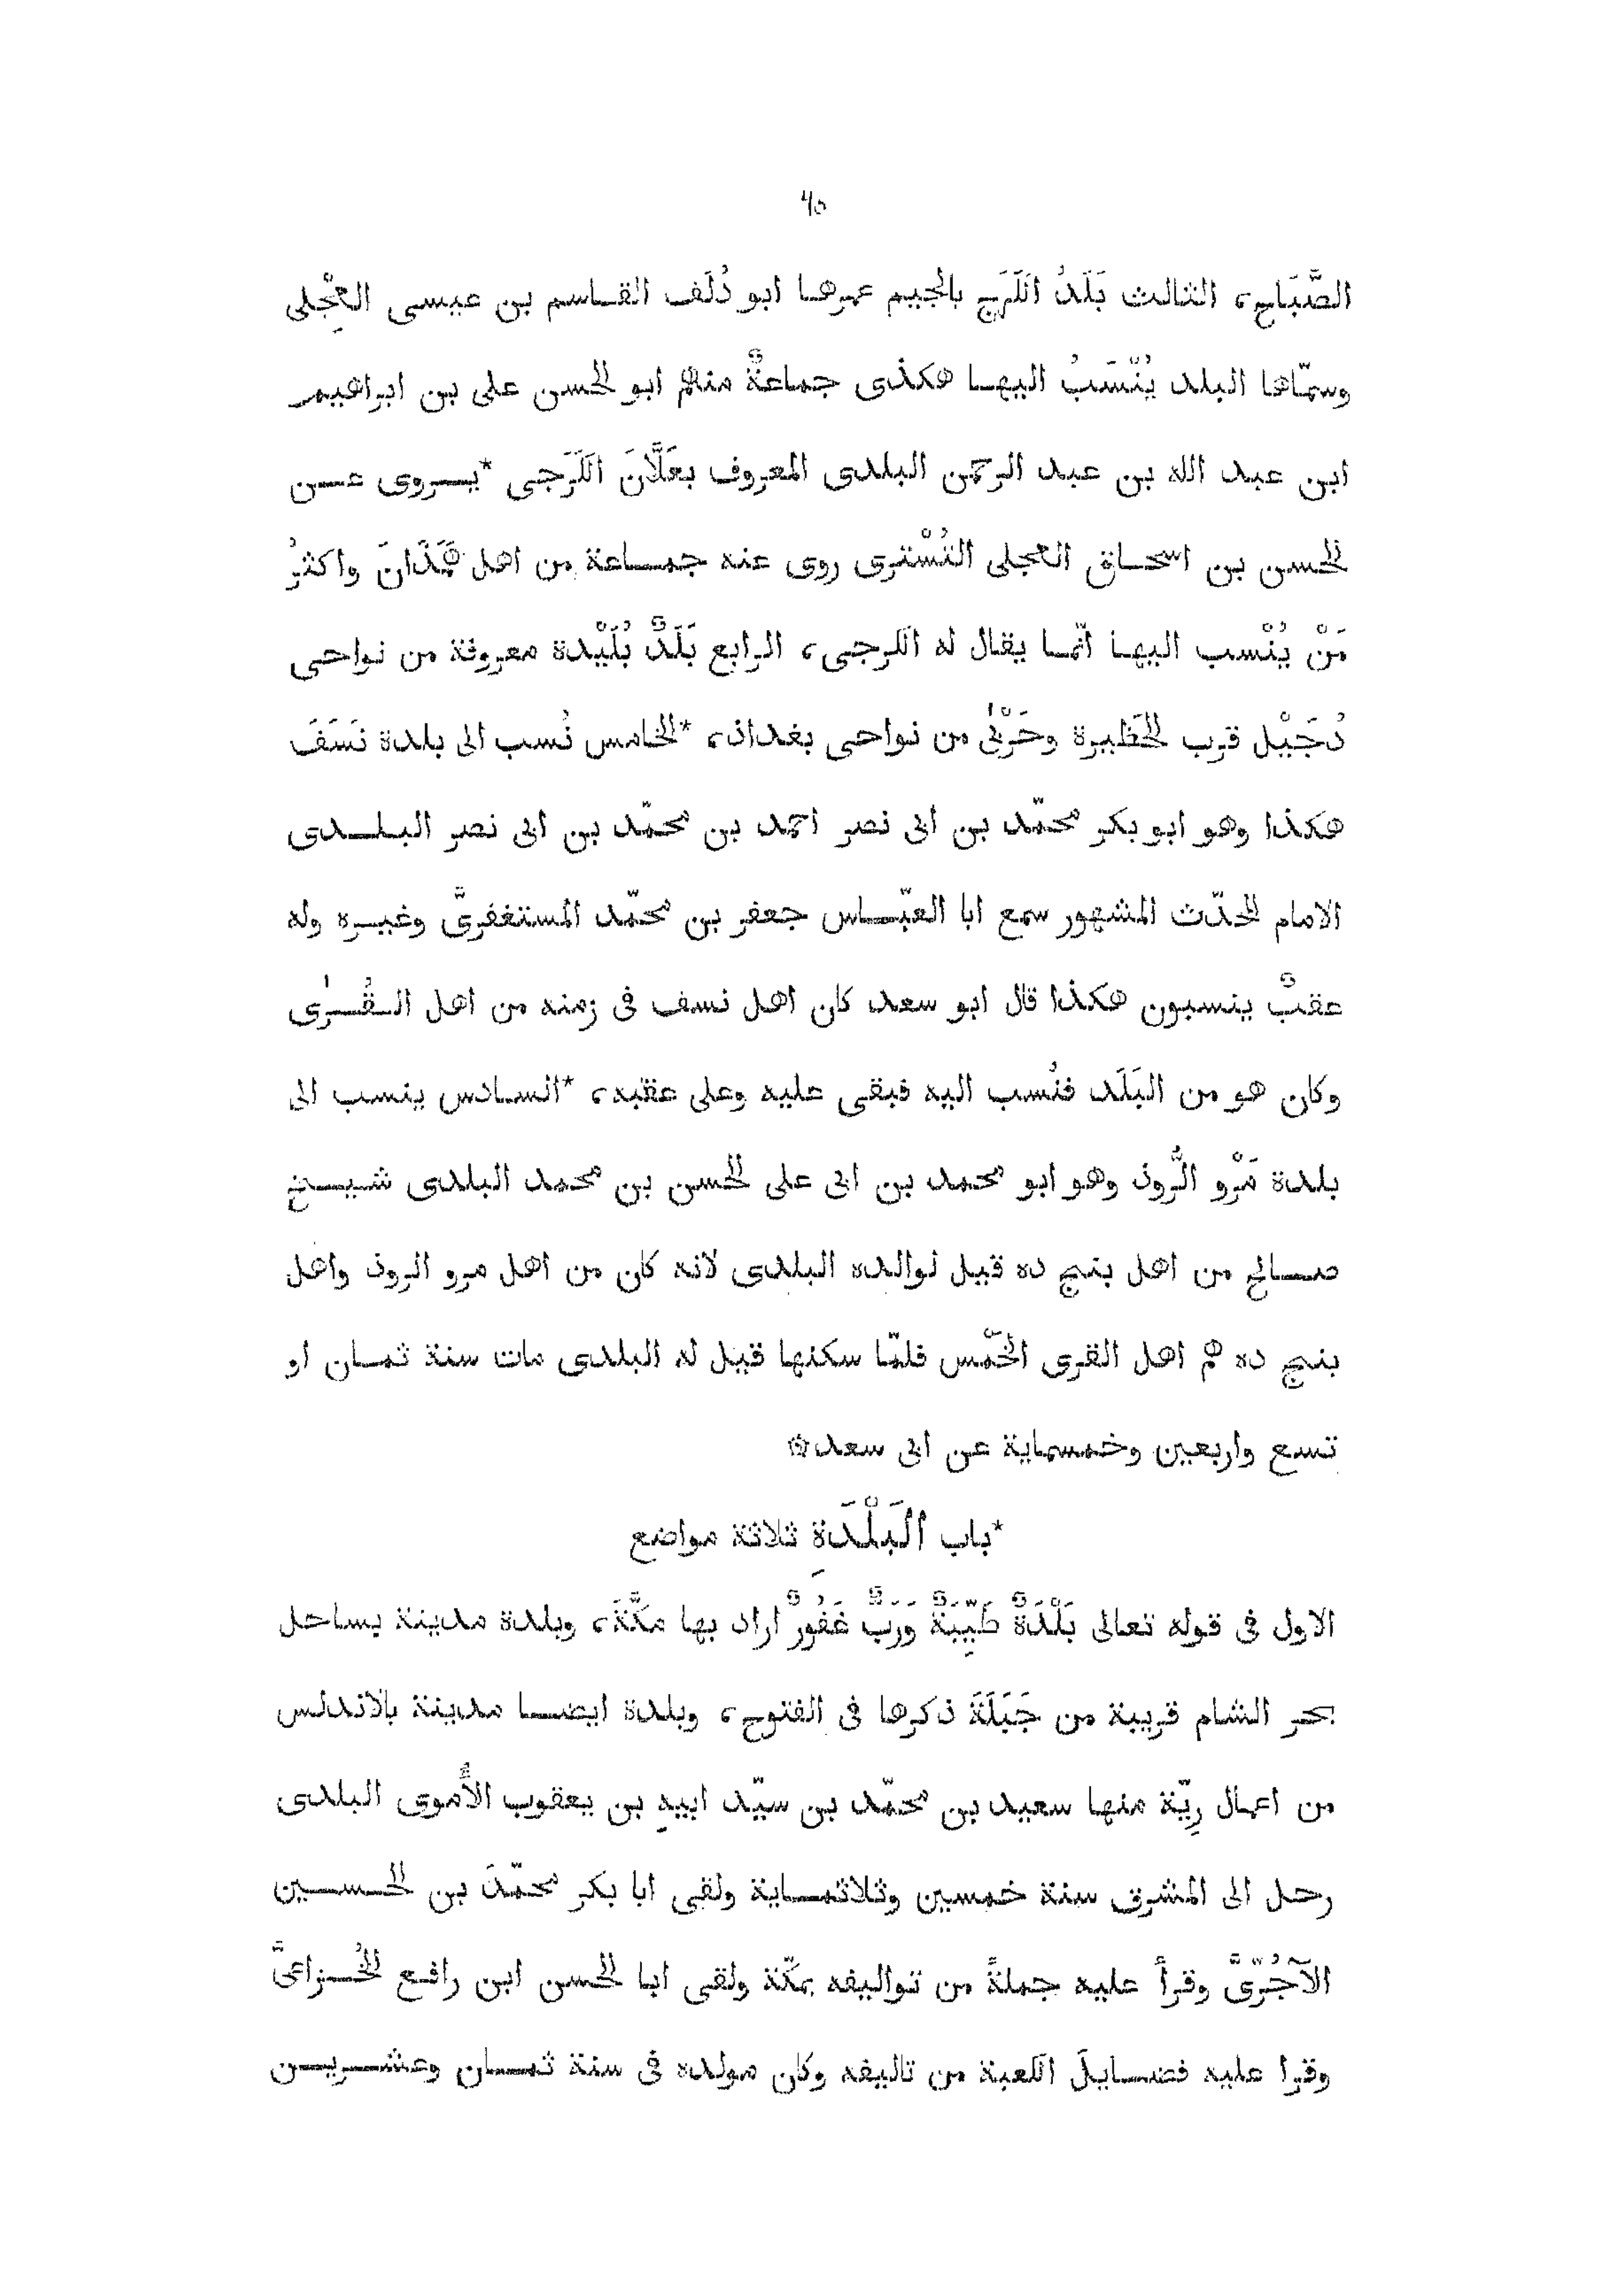 ٦٥
الصَّبَاح، الثالث بَلَدُ الكَرَج بالجيم عمرها ابو دُلَف القاسم بن عيسى العِجْلى
وسمّاها البلد يُنْسَبُ اليها هكذى جماعةٌ منهم ابو الحسن على بن ابراهيم
ابن عبد الله بن عبد الرحمن البلدى المعروف بعَلَّانَ الكَرَجى *يروى عن
الحسن بن اسحاق العجلى التُسْترى روى عنه جماعة من اهل هَمَذَانَ واكثرُ
مَنْ يُنْسب اليها انّما يقال له الكرجى، الرابع بَلَدٌ بُلَيْدة معروفة من نواحى
دُجَيْل قرب الحَظيرة وحَرْبَى من نواحى بغداد، *الخامس نُسب الى بلدة نَسَفَ
هكذا وهو ابو بكر محمّد بن ابى نصر احمد بن محمّد بن ابى نصر البلدى
الامام المحدّث المشهور سمع ابا العبّاس جعفر بن محمّد المستغفرىَّ وغيره وله
عقبٌ ينسبون هكذا قال ابو سعد كان اهل نسف فى زمنه من اهل القُرَى
وكان هو من البَلَد فنُسب اليه فبقى عليه وعلى عقبه، *السادس ينسب الى
بلدة مَرْو الرُّوذ وهو ابو محمد بن ابى على الحسن بن محمد البلدى شيخ
صالح من اهل بنج ده قيل لوالده البلدى لانه كان من اهل مرو الروذ واهل
بنج ده هم اهل القرى الخَمْس فلمّا سكنها قيل له البلدى مات سنة ثمان او
تسع واربعين وخمسماية عن ابى سعد ۞
*باب البَلْدَةِ ثلاثة مواضع
الاول فى قوله تعالى بَلْدَةٌ طَيِّبَةٌ وَرَبٌّ غَفُورٌ اراد بها مكّةَ، وبلدة مدينة بساحل
بحر الشام قريبة من جَبَلَةَ ذكرها فى الفتوح، وبلدة ايضا مدينة بالاندلس
من اعمال رِيّة منها سعيد بن محمّد بن سيّد ابيهِ بن يعقوب الأُموى البلدى
رحل الى المشرق سنة خمسين وثلاثماية ولقى ابا بكر محمّدَ بن الحسين
الآجُرّىَّ وقرأ عليه جملةً من تواليفه بمكّة ولقى ابا الحسن ابن رافع الخُزاعىَّ
وقرا عليه فضايلَ الكعبة من تاليفه وكان مولده فى سنة ثمان وعشرين